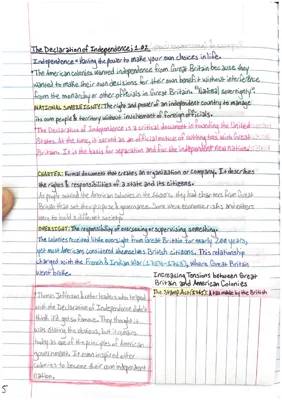 The Declaration of Independence; 1.02
Independence = Having the power to make your own choices in life.
*The American colonies wanted independence from Great Britain because they
wanted to make their own decisions for their own benefit without interference
from the monarchy or other officials in Great Britain. "National sovereignty".
NATIONAL SOVEREIGNTY: The right and power of an independent country to manage
its own people & territory without involvement of foreign officials.
The Declaration of Independence is a critical document in founding the United
States. At the time, it served as an official means of cutting ties with Great
Britain. It is the basis for separation and for the independent new nation.
CHARTER: Formal document that creates an organization or company. It describes
the rights & responsibilities of a state and its citizens.
As people entered the American colonies in the they had charters from Great
Britain that set their purpose & governance. Some were economic and others
were to build a different society.
OVERSIGHT: The responsibility of overseeing or supervising something.
The colonies received little oversight from Great Britain for nearly 200 years,
and most Americans considered themselves British citizens. This relationship
changed with the French & Indian War (1754-1763), where Great Britain
went broke.
Increasing Tensions between Great
Britain and American Colonies
The Stamp Act (1765): A tax made by the British
Thomas Jefferson & other leaders who helped
with the Declaration of Independence didn't
think it'd get so famous. They thought it
was stating the obvious, but it remains
today as one of the principles of American
government. It even inspired other
colonies to become their own independent
nation.
5